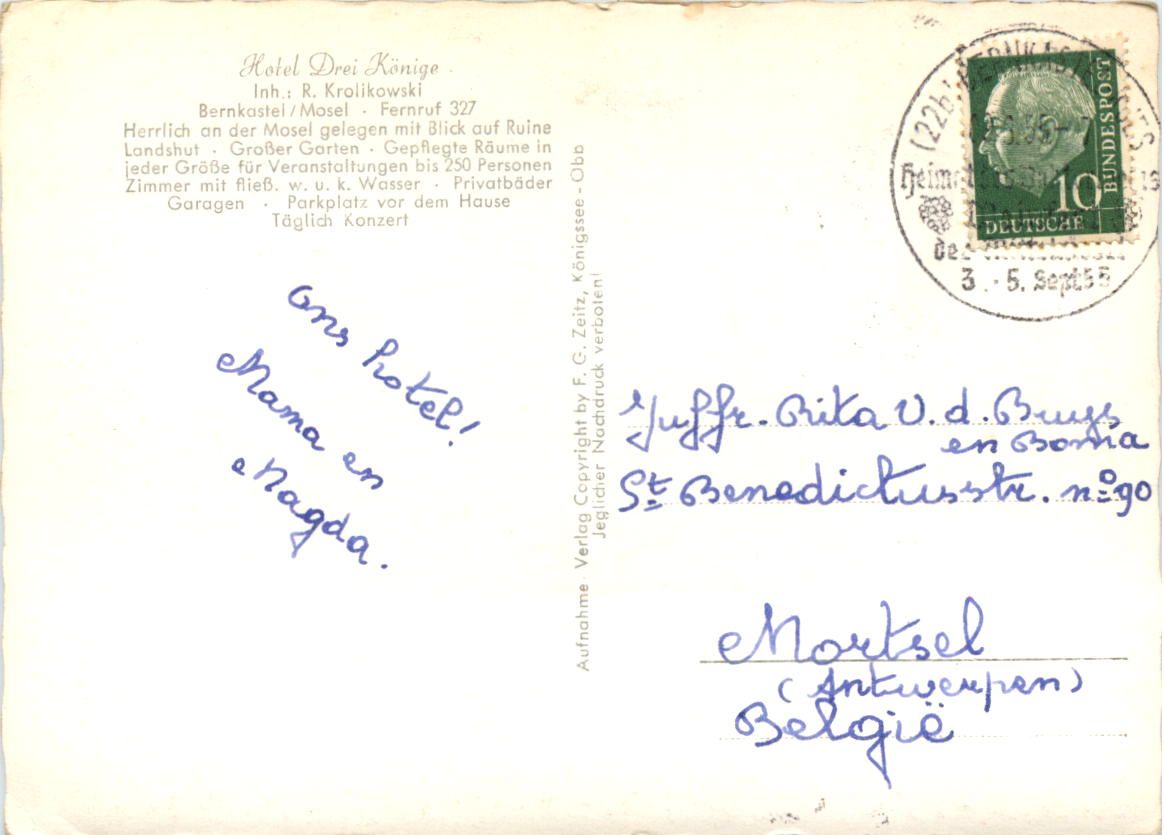 Hotel Drei Könige
Inh.: R. Krolikowski
Bernkastel / Mosel · Fernruf 327
Herrlich an der Mosel gelegen mit Blick auf Ruine
Landshut · Großer Garten · Gepflegte Räume in
jeder Größe für Veranstaltungen bis 250 Personen
Zimmer mit fließ. w. u. k. Wasser · Privatbäder
Garagen · Parkplatz vor dem Hause
Täglich Konzert
Ons hotel!
Mama en
Magda.
Aufnahme · Verlag Copyright by F. G. Zeitz, Königssee - Obb
Jeglicher Nachdruck verboten!
(22b) BERNKASTEL
3. - 5. Sept 55
BUNDESPOST
10
DEUTSCHE
Juffr. Rika V. d. Bruys
en Boma
St Benedictusstr. nº 90
Mortsel
(Antwerpen)
België